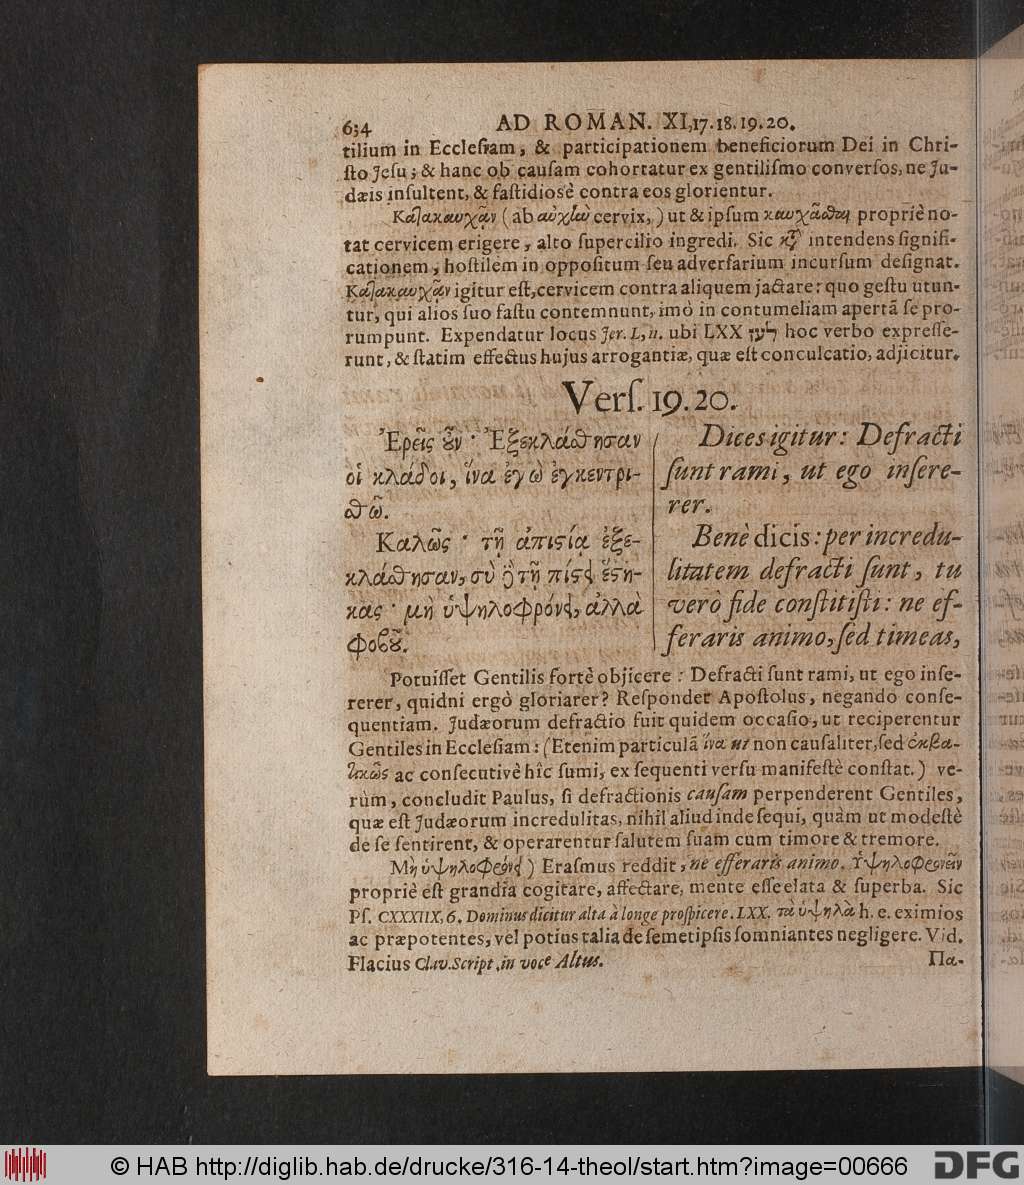 634 AD ROMAN. XI,17.18.19.20.
tilium in Eccleſiam, & participationem beneficiorum Dei in Chri-
ſto Jeſu; & hanc ob cauſam cohortatur ex gentiliſmo converſos, ne Ju-
dæis inſultent, & faſtidiosè contra eos glorientur.
Καλακαυχᾶν (ab αὐχὴν cervix,) ut & ipſum καυχᾶσθαι propriè no-
tat cervicem erigere, alto ſupercilio ingredi. Sic κατ᾽ intendens ſignifi-
cationem, hoſtilem in oppoſitum ſeu adverſarium incurſum deſignat.
Κατακαυχᾶν igitur eſt, cervicem contra aliquem jactare: quo geſtu utun-
tur, qui alios ſuo faſtu contemnunt, imò in contumeliam apertā ſe pro-
rumpunt. Expendatur locus Jer. L, 11. ubi LXX עלז hoc verbo expreſſe-
runt, & ſtatim effectus hujus arrogantiæ, quæ eſt conculcatio, adjicitur.
Verſ. 19.20.
Ἐρεῖς οὖν· Ἐξεκλάσθησαν
οἱ κλάδοι, ἵνα ἐγὼ ἐγκεντρι-
σθῶ.
Καλῶς· τῇ ἀπιστίᾳ ἐξε-
κλάσθησαν, σὺ δὲ τῇ πίστει ἕστη-
κας· μὴ ὑψηλοφρόνει, ἀλλὰ
φοβοῦ.
Dices igitur: Defracti
ſunt rami, ut ego inſere-
rer.
Benè dicis: per incredu-
litatem defracti ſunt, tu
verò fide conſtitiſti: ne ef-
feraris animo, ſed timeas,
Potuiſſet Gentilis fortè objicere: Defracti ſunt rami, ut ego inſe-
rerer, quidni ergò gloriarer? Reſpondet Apoſtolus, negando conſe-
quentiam. Judæorum defractio fuit quidem occaſio, ut reciperentur
Gentiles in Eccleſiam: (Etenim particulā ἵνα ut non cauſaliter, ſed ἐκβα-
τικῶς ac conſecutivè hîc ſumi, ex ſequenti verſu manifeſtè conſtat.) ve-
rùm, concludit Paulus, ſi defractionis cauſam perpenderent Gentiles,
quæ eſt Judæorum incredulitas, nihil aliud inde ſequi, quàm ut modeſtè
de ſe ſentirent, & operarentur ſalutem ſuam cum timore & tremore.
Μὴ ὑψηλοφρόνει) Eraſmus reddit, ne efferaris animo. Ὑψηλοφρονεῖν
propriè eſt grandia cogitare, affectare, mente eſſe elata & ſuperba. Sic
Pſ. CXXXIIX, 6. Dominus dicitur alta à longe proſpicere. LXX. τὰ ὑψηλὰ h. e. eximios
ac præpotentes, vel potius talia de ſemetipſis ſomniantes negligere. Vid.
Flacius Clav. Script. in voce Altus.
Πα-
© HAB http://diglib.hab.de/drucke/316-14-theol/start.htm?image=00666
DFG